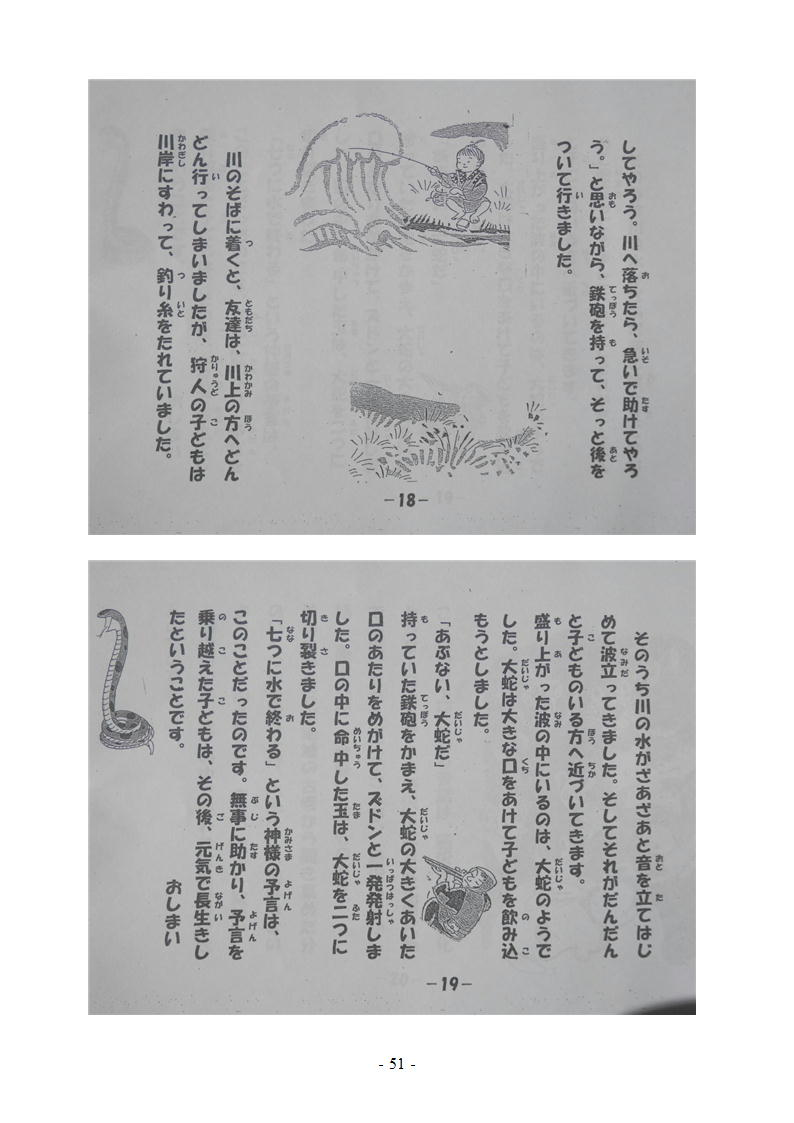 してやろう。川へ落ちたら、急いで助けてやろ
う。」と思いながら、鉄砲を持って、そっと後を
ついて行きました。
川のそばに着くと、友達は、川上の方へどん
どん行ってしまいましたが、狩人の子どもは
川岸にすわって、釣り糸をたれていました。
-18-
そのうち川の水がざあざあと音を立てはじ
めて波立ってきました。そしてそれがだんだん
と子どものいる方へ近づいてきます。
盛り上がった波の中にいるのは、大蛇のようで
した。大蛇は大きな口をあけて子どもを飲み込
もうとしました。
「あぶない、大蛇だ」
持っていた鉄砲をかまえ、大蛇の大きくあいた
口のあたりをめがけて、ズドンと一発発射しま
した。口の中に命中した玉は、大蛇を二つに
切り裂きました。
「七つに水で終わる」という神様の予言は、
このことだったのです。無事に助かり、予言を
乗り越えた子どもは、その後、元気で長生きし
たということです。
おしまい
-19-
- 51 -